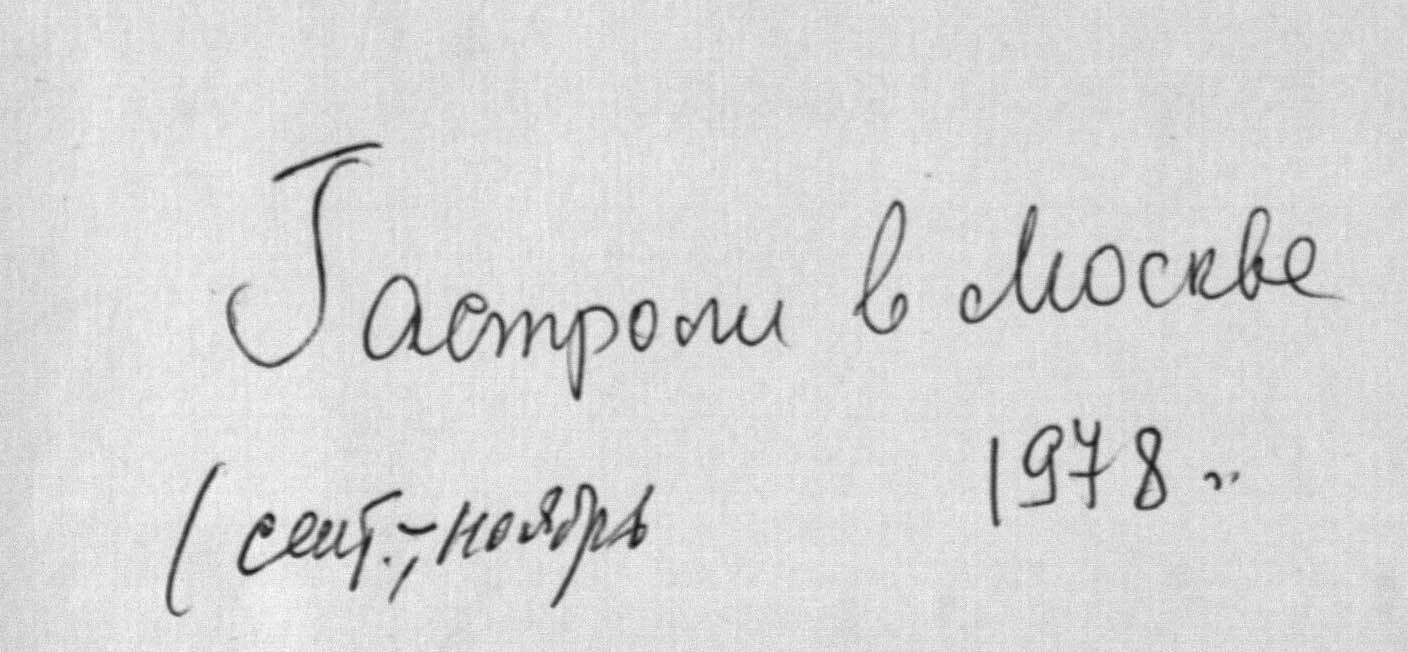 Гастроли в Москве
1978 г.
(сент.,-ноябрь